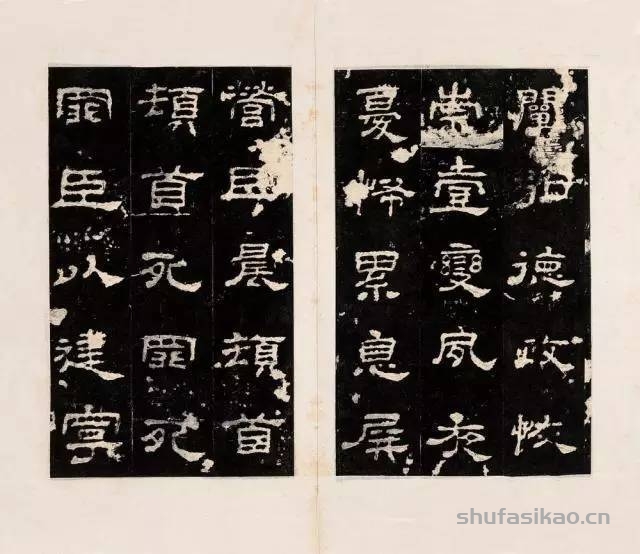 闡弘德政恢
崇壹變夙夜
憂怖累息屏
營臣晨頓首
頓首死罪死
罪臣以建寧
shufasikao.cn